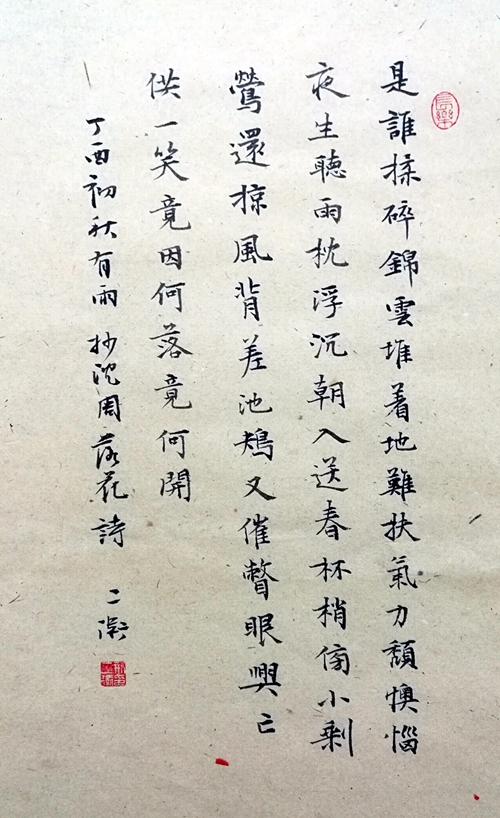 長樂
是誰揉碎錦雲堆着地難扶氣力頹懊惱
夜生聽雨枕浮沉朝入送春杯梢傍小剩
鶯還掠風背差池鴂又催瞥眼興亡
供一笑竟因何落竟何開
丁酉初秋有雨 抄沈周落花詩 二